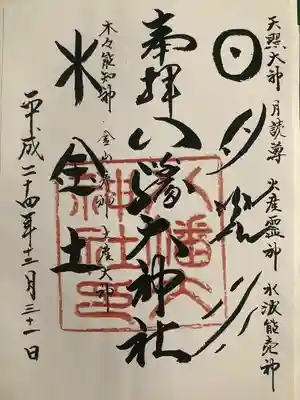 天照大神 月読尊 火産霊神 水波能売神
日月火水
奉拝 八幡大神社
木々能知神 金山彦神 大神
木金土
平成二十四年十二月三十一日
八幡大
神社印